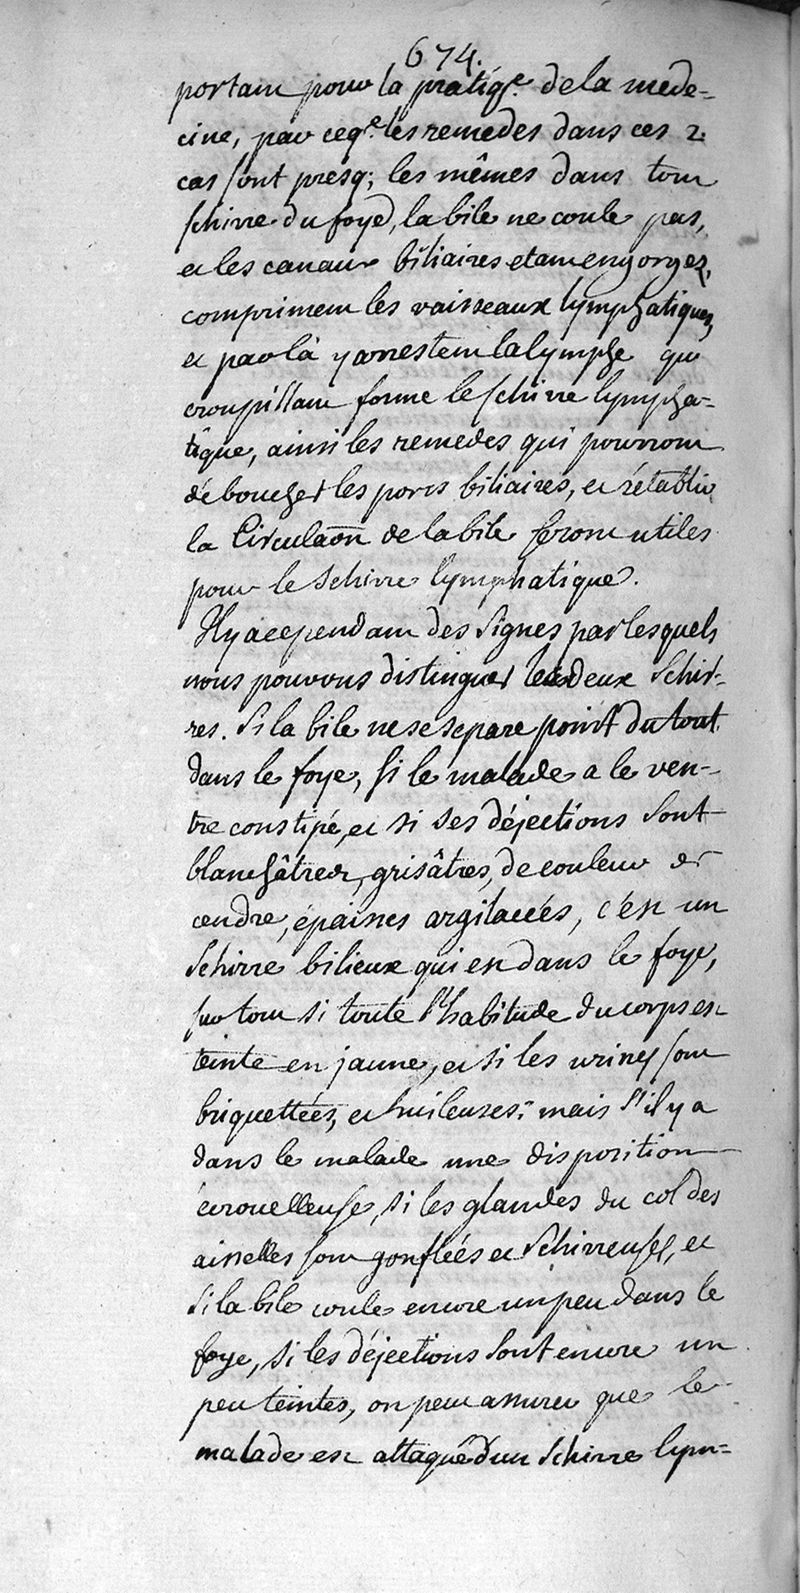 674.
portant pour la pratiqe. de la mede=
cine, par ceqe. les remedes dans ces 2.
cas sont presq; les mêmes dans tout
schirre du foye, la bile ne coule pas,
et les canaux biliaires etant engorgez,
compriment les vaisseaux lymphatiques,
et par là y arrestent la lymphe qui
croupissant forme le schirre lympha=
tique, ainsi les remedes qui pourront
déboucher les pores biliaires, et rétablir
la Circulaon de la bile seront utiles
pour le schirre lymphatique.
Il y a cependant des signes par lesquels
nous pouvons distinguer les deux schir-
res. Si la bile ne se separe point du tout
dans le foye, si le malade a le ven-
tre constipé, et si ses déjections sont
blanchâtres, grisâtres, de couleur de
cendre, épaisses argilacées, c'est un
schirre bilieux qui est dans le foye,
sur tout si toute l'habitude du corps est
teinte en jaune, et si les urines sont
briquettées, et huileuses; mais s'il y a
dans le malade une disposition
écrouelleuse, si les glandes du col des
aisselles sont gonflées et schirreuses, et
si la bile coule encore un peu dans le
foye, si les déjections sont encore un
peu teintes, on peut assurer que le
malade est attaqué d'un schirre lym=